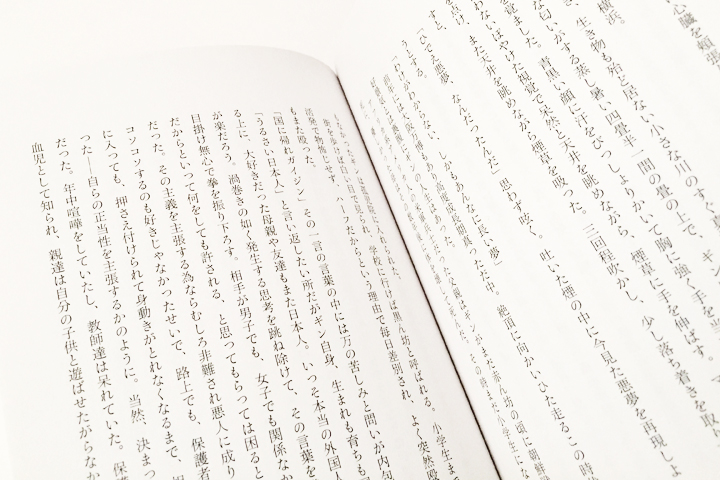 心臓を頬張
横浜。
生き物も殆ど居ない小さな川のすぐ
な匂いがする蒸し暑い四畳半一間の畳の上で、ギン
覚ました。青黒い顔に汗をびっしょりかいて胸に強く手を当
わないぼやけた視覚で呆然と天井を眺めながら、煙草に手を伸ばす。
点け、また天井を眺めながら煙草を吸う。三回程吹かし、少し落ち着きを取
すと、
「ひでえ悪夢、なんだったんだ」思わず呟く。吐いた煙の中に今見た悪夢を再現しよ
うとする。
「わけがわからない。しかもあんなに長い夢」
高度成長期真っただ中。絶頂に向かいひた走るこの時
街を歩けば白い目で見られ、学校に行けば黒ん坊と呼ばれる。小学生ま
活発で物怖じせず、ハーフだからという理由で毎日差別され、よく突然殴
もまた殴った。
「うるさい日本人」
「国に帰れガイジン」その一言の言葉の中には万の苦しみと問いが内包
と言い返したい所だがギン自身、生まれも育ちも
る上に、大好きだった母親や友達もまた日本人。いっそ本当の外国人
が楽だろう、渦巻きの如く発生する思考を跳ね除けて、その言葉を
目掛け無心で拳を振り下ろす。相手が男子でも、女子でも関係なか
だからといって何をしても許される、と思ってもらっては困ると
だった。その主義を主張する為ならむしろ非難され悪人に成り
コソコソするのも好きじゃなかったせいで、路上でも、保護者
に入っても、押さえ付けられて身動きがとれなくなるまで、
った――自らの正当性を主張するかのように。当然、決まっ
だった。年中喧嘩をしていたし、教師達は呆れていた。保
血児として知られ、親達は自分の子供と遊ばせたがらなか